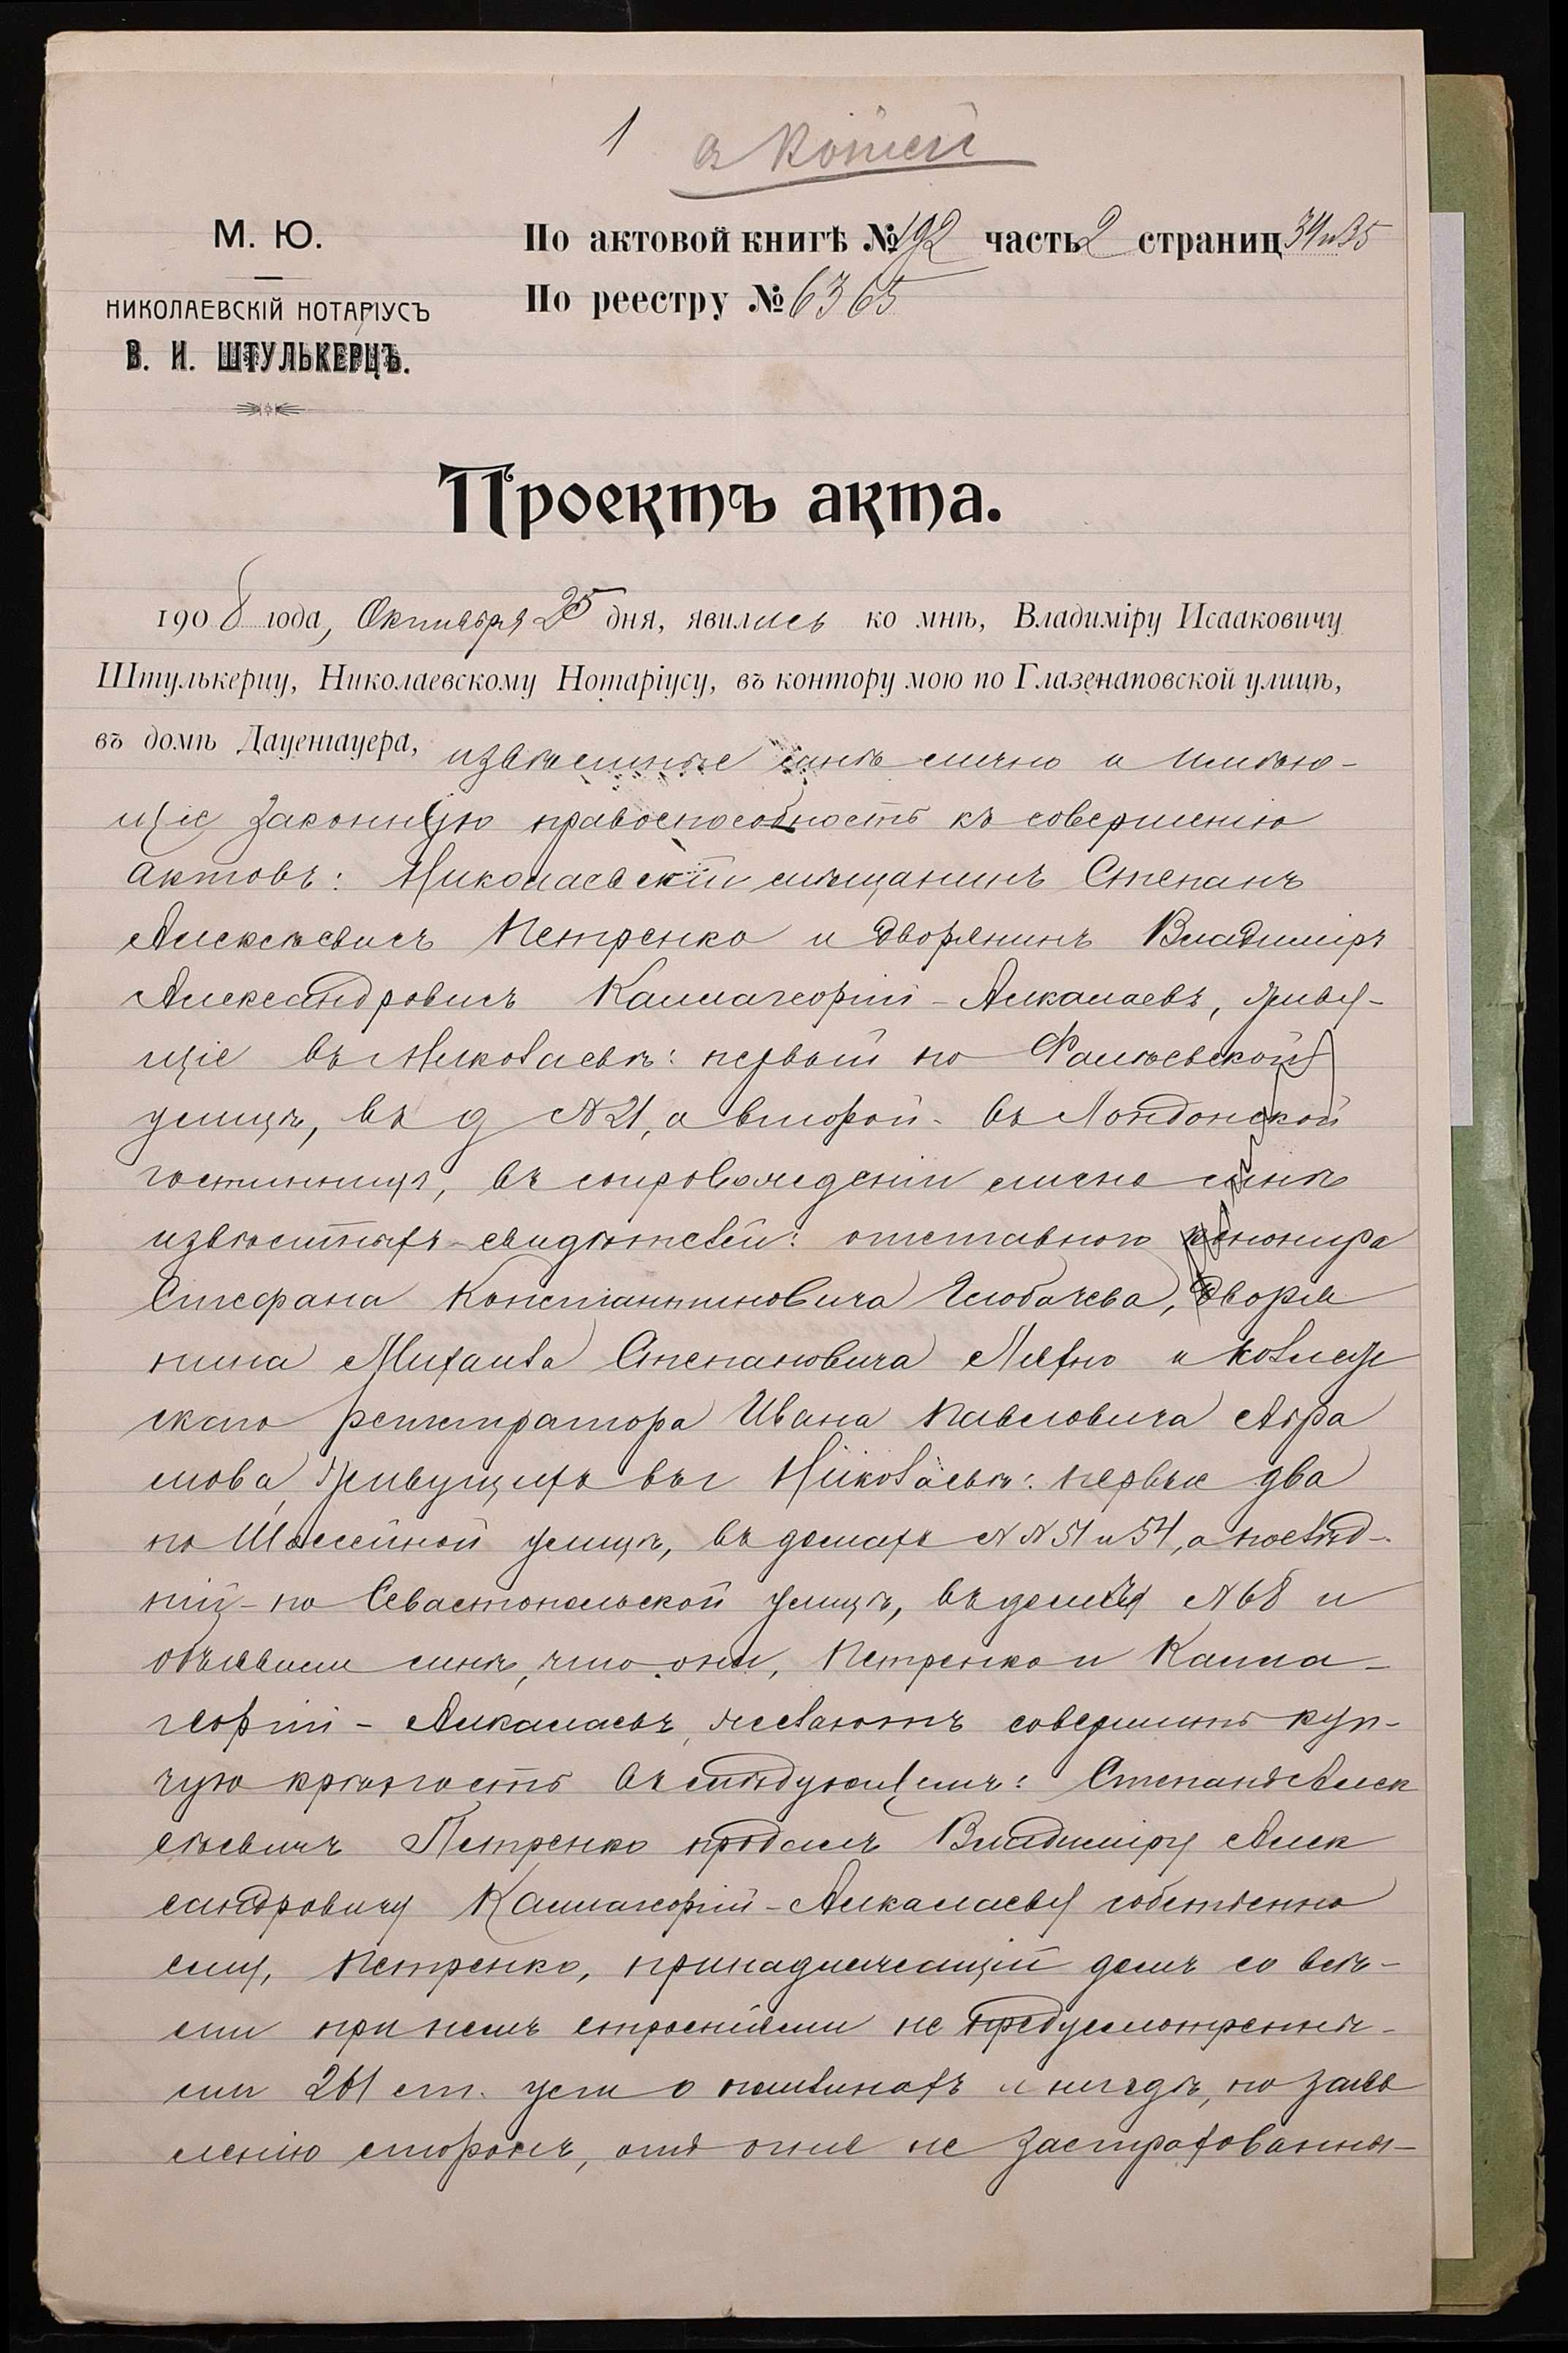 1 а копіей
М. Ю.
НИКОЛАЕВСКІЙ НОТАРІУСЪ
В. И. ШТУЛЬКЕРЦЪ.
По актовой книгѣ № 192 часть 2 страниц 34 и 35
По реестру № 6365
Проектъ акта.
1908 года, Октября 25 дня, явились ко мнѣ, Владиміру Исааковичу
Штулькерцу, Николаевскому Нотаріусу, въ контору мою по Глазенаповской улицѣ,
въ домѣ Дауенгауера, извѣстные мнѣ лично и имѣю-
щіе законную правоспособность къ совершенію
актовъ: Николаевскій мѣщанинъ Степанъ
Алексѣевичъ Петренко и дворянинъ Владиміръ
Александровичъ Калмагеоргій-Алкалаевъ, живу-
щіе въ Николаевѣ: первый по Фалѣевской
улицѣ, въ д № 21, а второй - въ Лондонской
гостинницѣ, въ сопровожденіи лично мнѣ
извѣстныхъ свидѣтелей: отставного юнкира
Стефана Константиновича Глобачева, дворя
нина Михаила Степановича Ляхно и коллеж
скаго регистратора Ивана Павловича Абра
мова, живущихъ въ г Николаевѣ: первые два
по Шоссейной улицѣ, въ домахъ № № 51 и 54, а послѣд-
ній - по Севастопольской улицѣ, въ домѣ № 68 и
объявили мнѣ, что они, Петренко и Калма-
георгій - Алкалаевъ, желаютъ совершить куп-
чую крѣпость въ слѣдующемъ: Степанъ Алек
сѣевичъ Петренко продалъ Владиміру Алек
сандровичу Калмагеоргій-Алкалаеву собственно
ему, Петренко, принадлежащій домъ со всѣ-
ми при немъ строеніями не предусмотренны-
ми 261 ст. уст о пошлинахъ и нигдѣ, по заяв
ленію сторонъ, отъ огня не застрахованны-